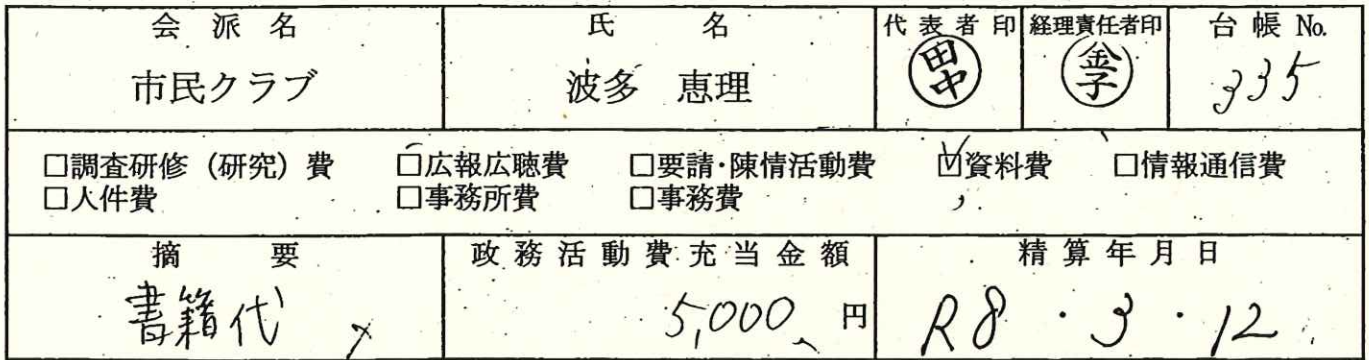 会派名 氏名 代表者印 経理責任者印 台帳No.
市民クラブ 波多 恵理 田中 金子 335
□調査研修(研究)費 □広報広聴費 □要請・陳情活動費 ☑資料費 □情報通信費
□人件費 □事務所費 □事務費
摘要 政務活動費充当金額 精算年月日
書籍代 5,000円 R8・3・12